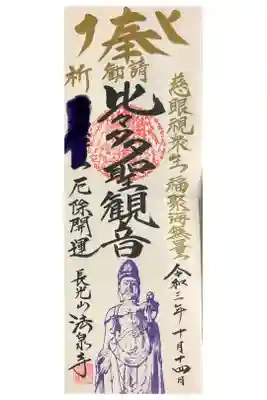 奉
勧請
慈眼視衆生 福聚海無量
比々多聖観音
令和三年十月十四日
祈
厄除開運
長光山
法泉寺